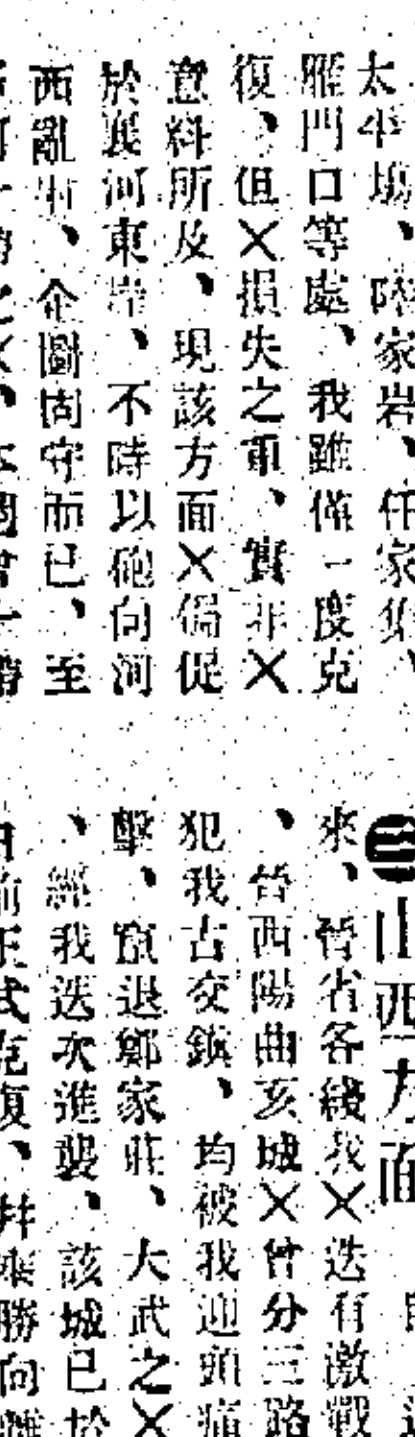 太平場、陸家岩、任家集、
雁門口等處、我雖僅一度克
復、但×損失之重、實非×
意料所及、現該方面×侷促
於襄河東岸、不時以砲向河
西亂射、企圖固守而已、至
㊂山西方面
來、晉省各綫我×迭有激戰
、晉西陽曲亥城×曾分三路
犯我古交鎮、均被我迎頭痛
擊、竄退鄭家莊、大武之×
、經我迭次進襲、該城已於
日前正式克復、并乘勝向離